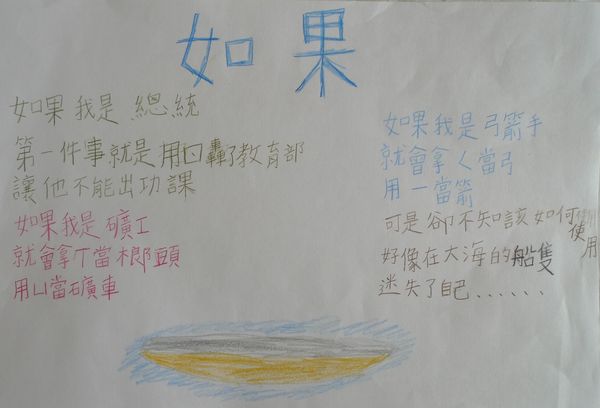 如果
如果我是總統
第一件事就是用口轟了教育部
讓他不能出功課
如果我是礦工
就會拿丁當榔頭
用凵當礦車
如果我是弓箭手
就會拿ㄑ當弓
用一當箭
可是卻不知該如何使用
好像在大海的船隻
迷失了自己......